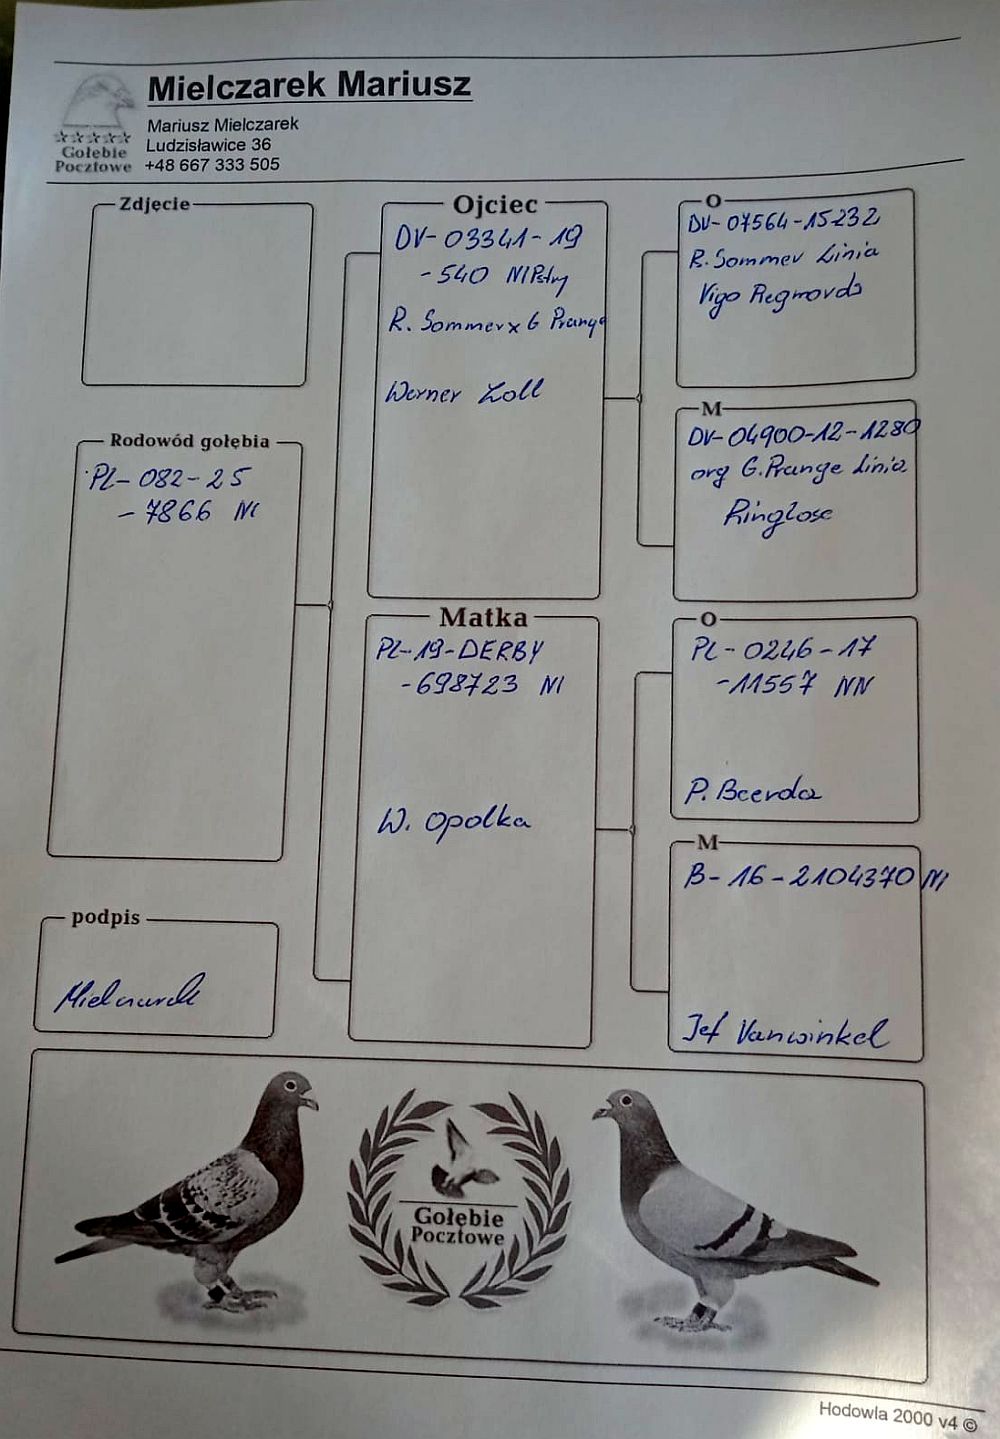 Mielczarek Mariusz
Mariusz Mielczarek
Ludzisławice 36
+48 667 333 505
Gołębie
Pocztowe
Zdjęcie
Rodowód gołębia
PL-082-25
-7866 NI
podpis
Ojciec
DV-03341-19
-540 NIPstry
R. Sommer x G Prange
Werner Zoll
Matka
PL-19-DERBY
-698723 NI
W. Opolka
O
DV-07564-15-232
R. Sommer Linia
Vigo
M
DV-04900-12-1280
org G. Prange Linia
O
PL-0246-17
-11557 NN
P. Beerda
M
B-16-2104370 NI
Jef Vanwinkel
Gołębie
Pocztowe
Hodowla 2000 v4 ©